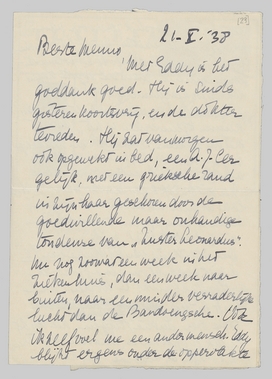 [24]
21-X-'38
Beste Menno,
Met Eddy is het
goddank goed. Hij is sinds
gisteren koortsvrij, en de dokter
tevreden. Hij zat vanmorgen
ook opgewekt in bed, een
gelijk, met een grieksche rand
in zijn haar geschoren door de
goedwillende maar onhandige
tondeuse van „zuster Leonardus".
Nu nog zoowat een week in het
ziekenhuis, dan een week naar
buiten, naar een minder verraderlijke
lucht dan de Bandoengsche. Ook
ik zelf voel me een ander mensch. Eddy
blijkt ergens onder de oppervlakte